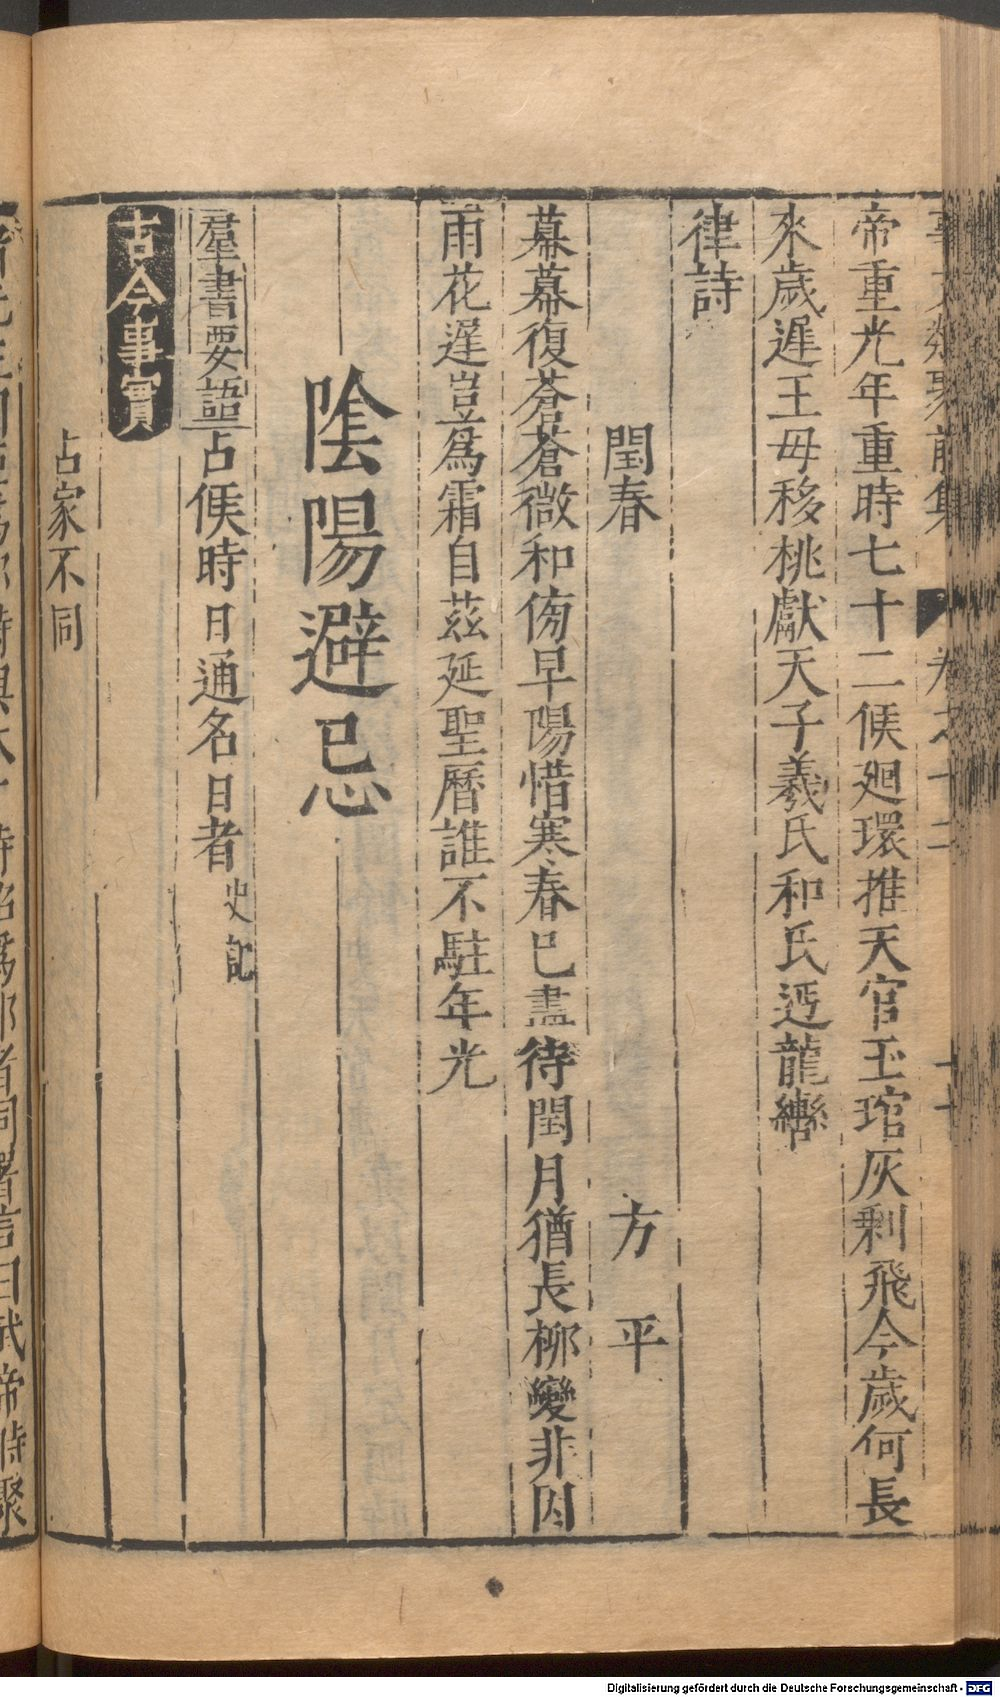 事文類聚前集 卷之十二
帝重光年重時七十二候廻環推天官玉琯灰剩飛今歲何長
來歲遲王母移桃獻天子羲氏和氏迓龍轡
律詩
閏春 方平
幕幕復蒼蒼微和傍早陽惜寒春已盡待閏月猶長柳變非因
雨花遲豈爲霜自茲延聖曆誰不駐年光
陰陽避忌
羣書要語占候時日通名日者史記
古今事實
占家不同
Digitalisierung gefördert durch die Deutsche Forschungsgemeinschaft - DFG